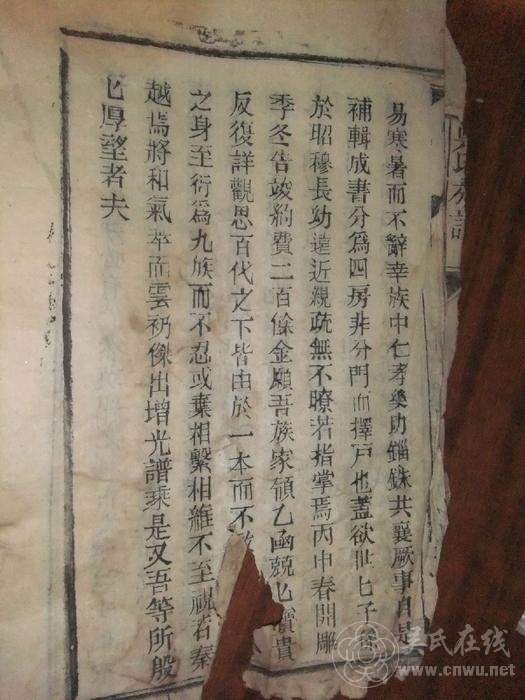 易寒暑而不辭幸族中仁孝樂助錙銖共襄厥事自是
補輯成書分爲四房非分門而擇戶也蓋欲世匕子
於昭穆長幼遠近親疏無不暸若指掌焉丙申春開雕
季冬告竣約費二百餘金願吾族家領乙函兢匕寶貴
反復詳觀思百代之下皆由於一本而不
之身至衍爲九族而不忍或棄相繫相維不至視若秦
越焉將和氣萃而雲礽傑出增光譜乘是又吾等所殷
匕厚望者夫
吳氏族譜
吴氏在线
www.cnwu.net